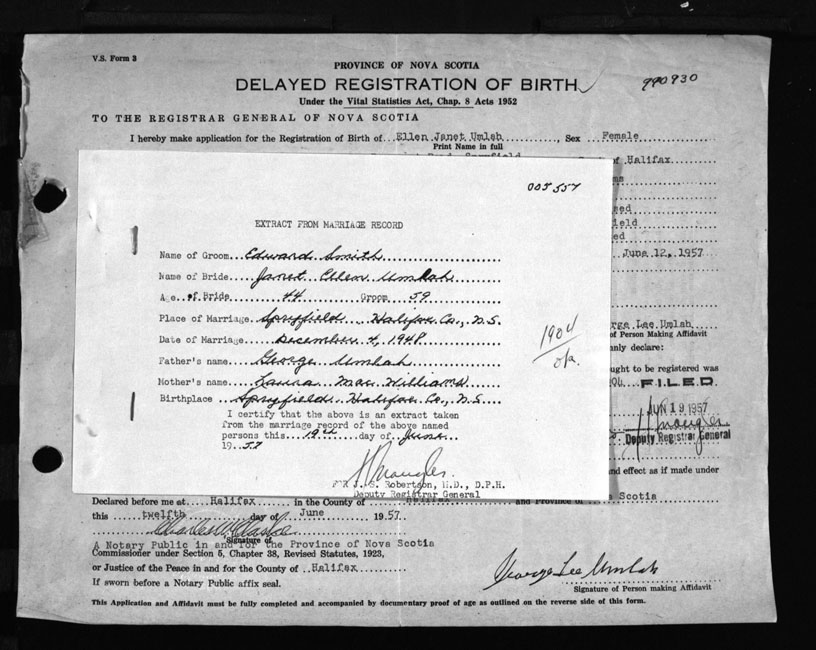 V.S. Form 3
PROVINCE OF NOVA SCOTIA
DELAYED REGISTRATION OF BIRTH
990930
Under the Vital Statistics Act, Chap. 8 Acts 1952
TO THE REGISTRAR GENERAL OF NOVA SCOTIA
I hereby make application for the Registration of Birth of Ellen Janet Umlah, Sex Female
Print Name in full
of Halifax
003557
EXTRACT FROM MARRIAGE RECORD
Name of Groom Edward Smith
Name of Bride Janet Ellen Umlah
Age of Bride 44 Groom 59
Place of Marriage Spryfield Halifax Co., N.S.
Date of Marriage December 4, 1948
Father's name George Umlah
Mother's name Laura Mac Williams
Birthplace Spryfield Halifax Co., N.S.
I certify that the above is an extract taken
from the marriage record of the above named
persons this 19th day of June
1957
FOR J. S. Robertson, M.D., D.P.H.
Deputy Registrar General
1904
ield
June 12, 1957
rge Lee Umlah
of Person Making Affidavit
nly declare:
ought to be registered was
FILED
JUN 19 1957
Deputy Registrar General
and effect as if made under
Declared before me at Halifax in the County of Halifax and Province of Nova Scotia
this twelfth day of June 1957
Signature of
A Notary Public in and for the Province of Nova Scotia
Commissioner under Section 5, Chapter 38, Revised Statutes, 1923,
or Justice of the Peace in and for the County of Halifax
If sworn before a Notary Public affix seal.
George Lee Umlah
Signature of Person making Affidavit
This Application and Affidavit must be fully completed and accompanied by documentary proof of age as outlined on the reverse side of this form.